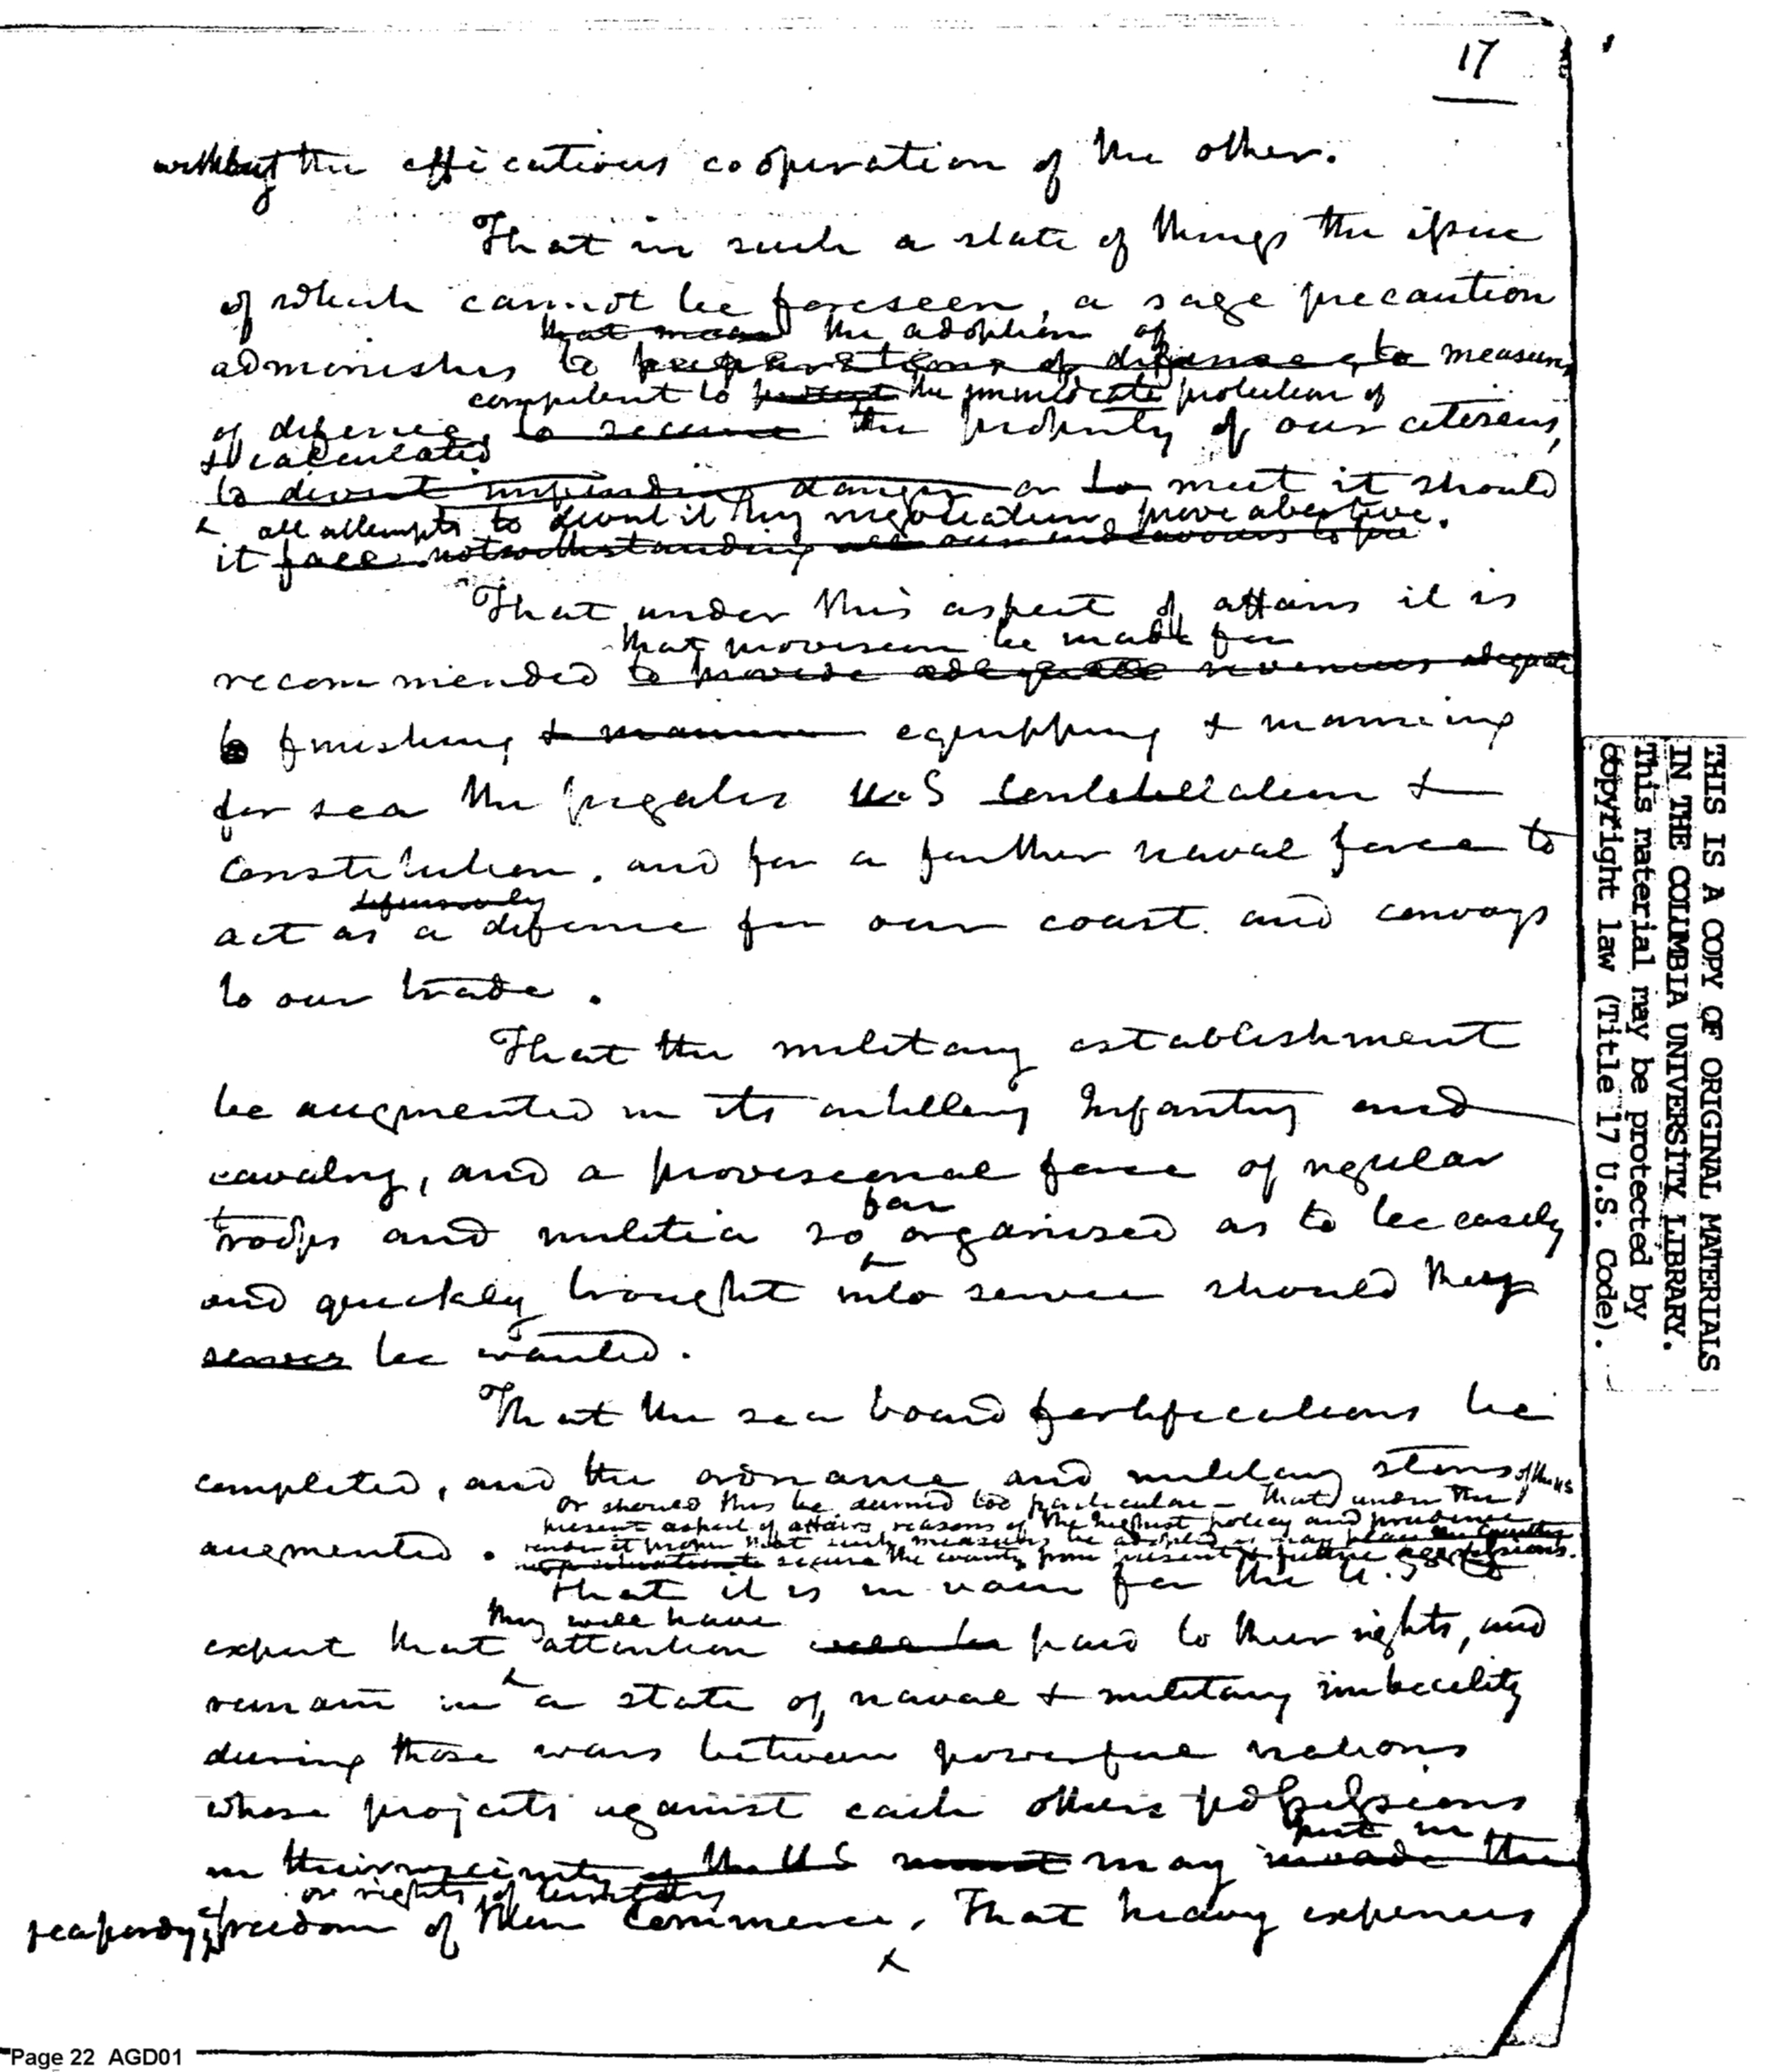 17
without the efficatious cooperation of the other.
That in such a state of things the issue
of which cannot be foreseen, a sage precaution
that means the adoption of
admonishes to preparations of defense, to measures
competent to protect the immediate protection of
of defence, to secure the property of our citizens,
& calculated
to divert impending danger or to meet it should
all attempts to divert it by negotiation, prove abortive.
it fall notwithstanding all our endeavours to
That under this aspect of affairs it is
that provision be made for
recommended to provide adequate revenues adequate
to finishing & manning equipping & manning
for sea the frigates U.S Constellation &
Constitution. and for a further naval force to
defensively
act as a defence for our coast. and convoys
to our trade.
That the military establishment
be augmented in its artillery Infantry and
cavalry, and a provisional force of regular
far
troops and militia so organised as to be easily
and quickly brought into service should they
service be wanted.
That the sea board fortifications be
completed, and the ordnance and military stores of the US
or should this be deemed too particular – that under the
present aspect of affairs reasons of the highest policy and prudence
augmented.
render it proper that such measures be adopted as may place the country
secure the country from present & future aggressions.
That it is in vain for the U.S to
they will have
expect that attention will be paid to their rights, and
remain in a state of naval & military imbecility
during those wars between powerful nations
whose projects against each others possessions
put in
in their vicinity of the U S must may invade the
or rights of territory
jeapordy freedom of their Commerce. That heavy expences
x
THIS IS A COPY OF ORIGINAL MATERIALS
IN THE COLUMBIA UNIVERSITY LIBRARY.
This material may be protected by
copyright law (Title 17 U.S. Code).
Page 22 AGD01